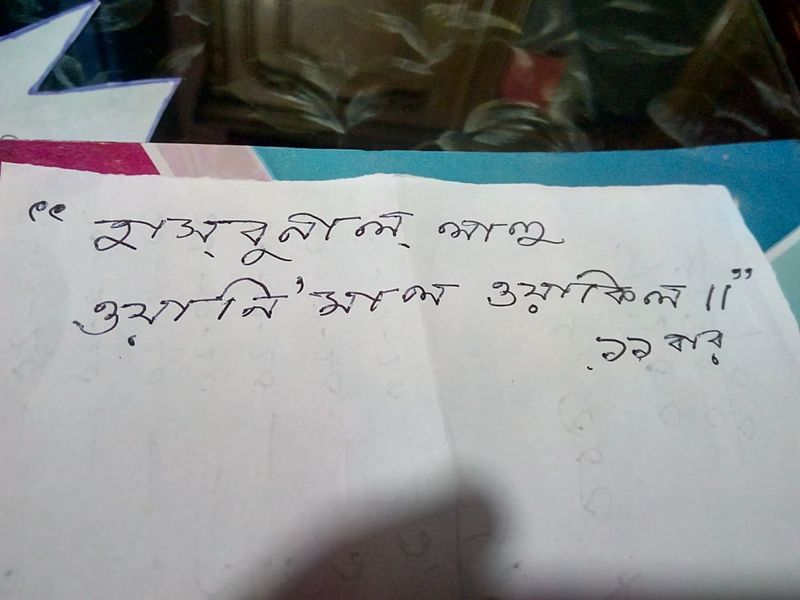 “হাস্বুনাল্ লাহু
ওয়ানি’মাল ওয়াকিল॥”
১১ বার্